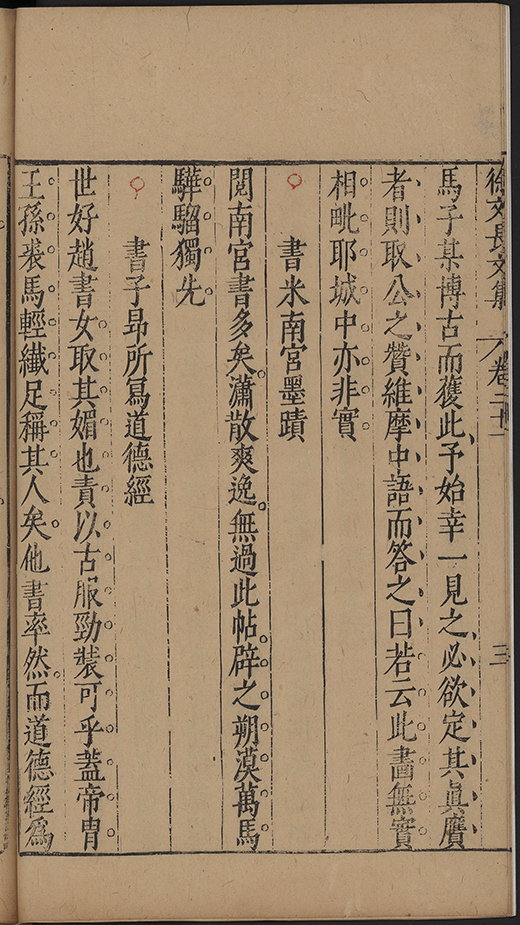 徐文長文集 卷二十一 三
馬子某博古而獲此予始幸一見之必欲定其眞贋
者則取公之贊維摩中語而答之曰若云此畵無實
相毗耶城中亦非實
書米南宮墨蹟
閱南宮書多矣瀟散爽逸無過此帖辟之朔漠萬馬
驊騮獨先
書子昻所寫道德經
世好趙書女取其媚也責以古服勁裝可乎葢帝胄
王孫裘馬輕纖足稱其人矣他書率然而道德經爲